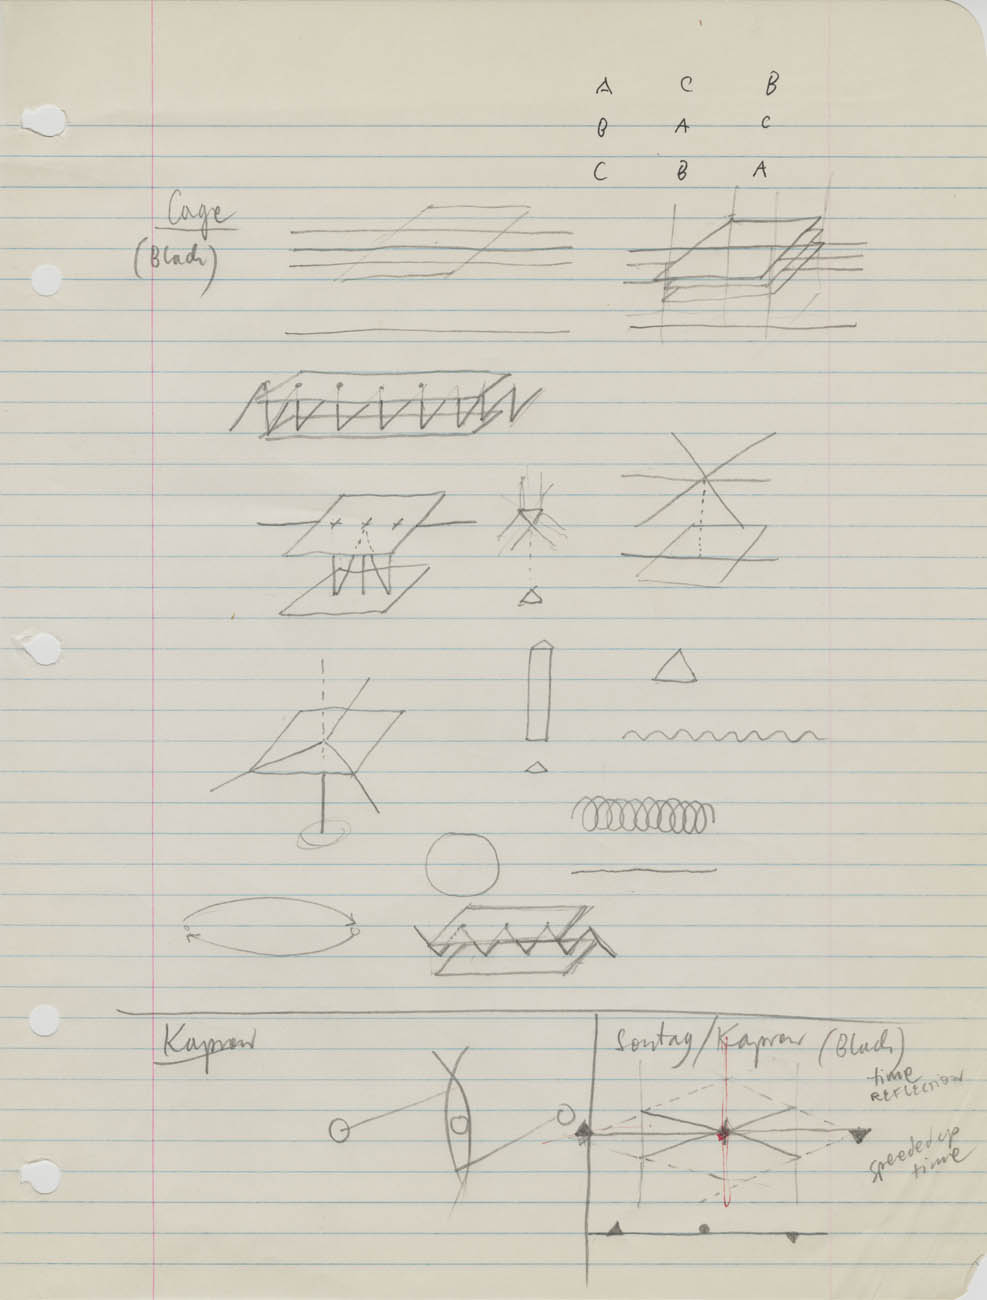 A C B
B A C
C B A
Cage
(Black)
Kaprow
Sontag/Kaprow (Black)
time
REFLECTION
speeded up
time